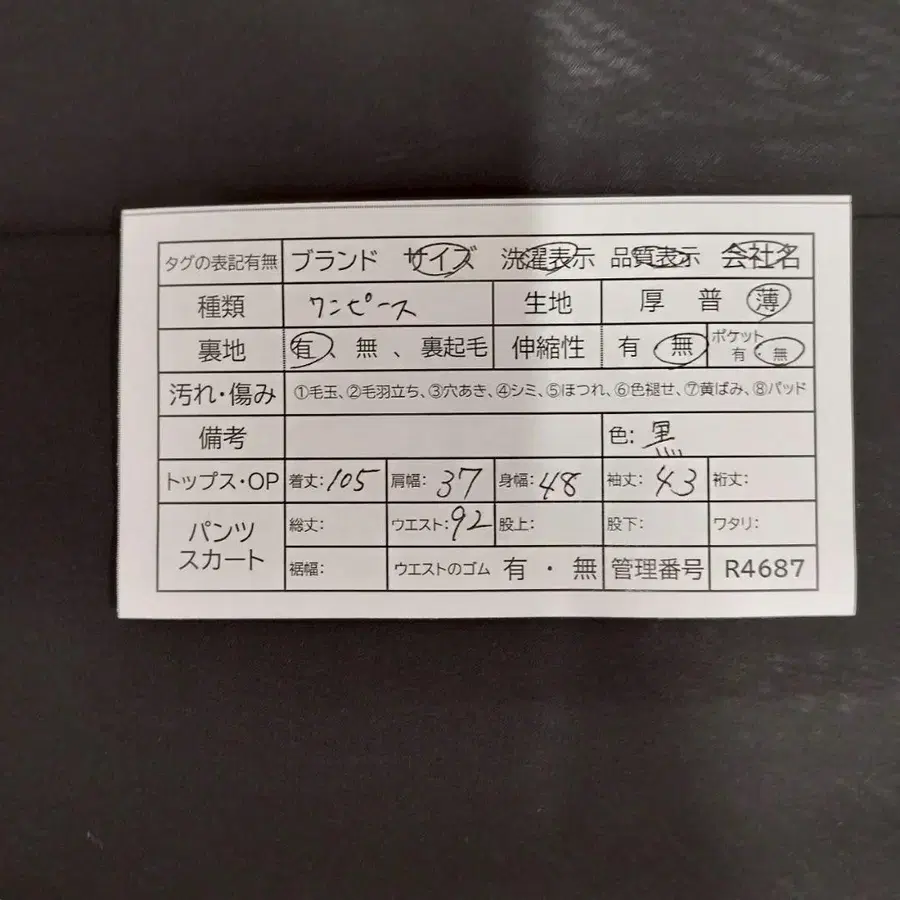 タグの表記有無 ブランド サイズ 洗濯表示 品質表示 会社名
種類 ワンピース 生地 厚 普 薄
裏地 有、無、裏起毛 伸縮性 有 無 ポケット 有・無
汚れ・傷み ①毛玉、②毛羽立ち、③穴あき、④シミ、⑤ほつれ、⑥色褪せ、⑦黄ばみ、⑧パッド
備考 色: 黒
トップス・OP 着丈:105 肩幅:37 身幅:48 袖丈:43 裄丈:
パンツ スカート 総丈: ウエスト:92 股上: 股下: ワタリ:
裾幅: ウエストのゴム 有・無 管理番号 R4687